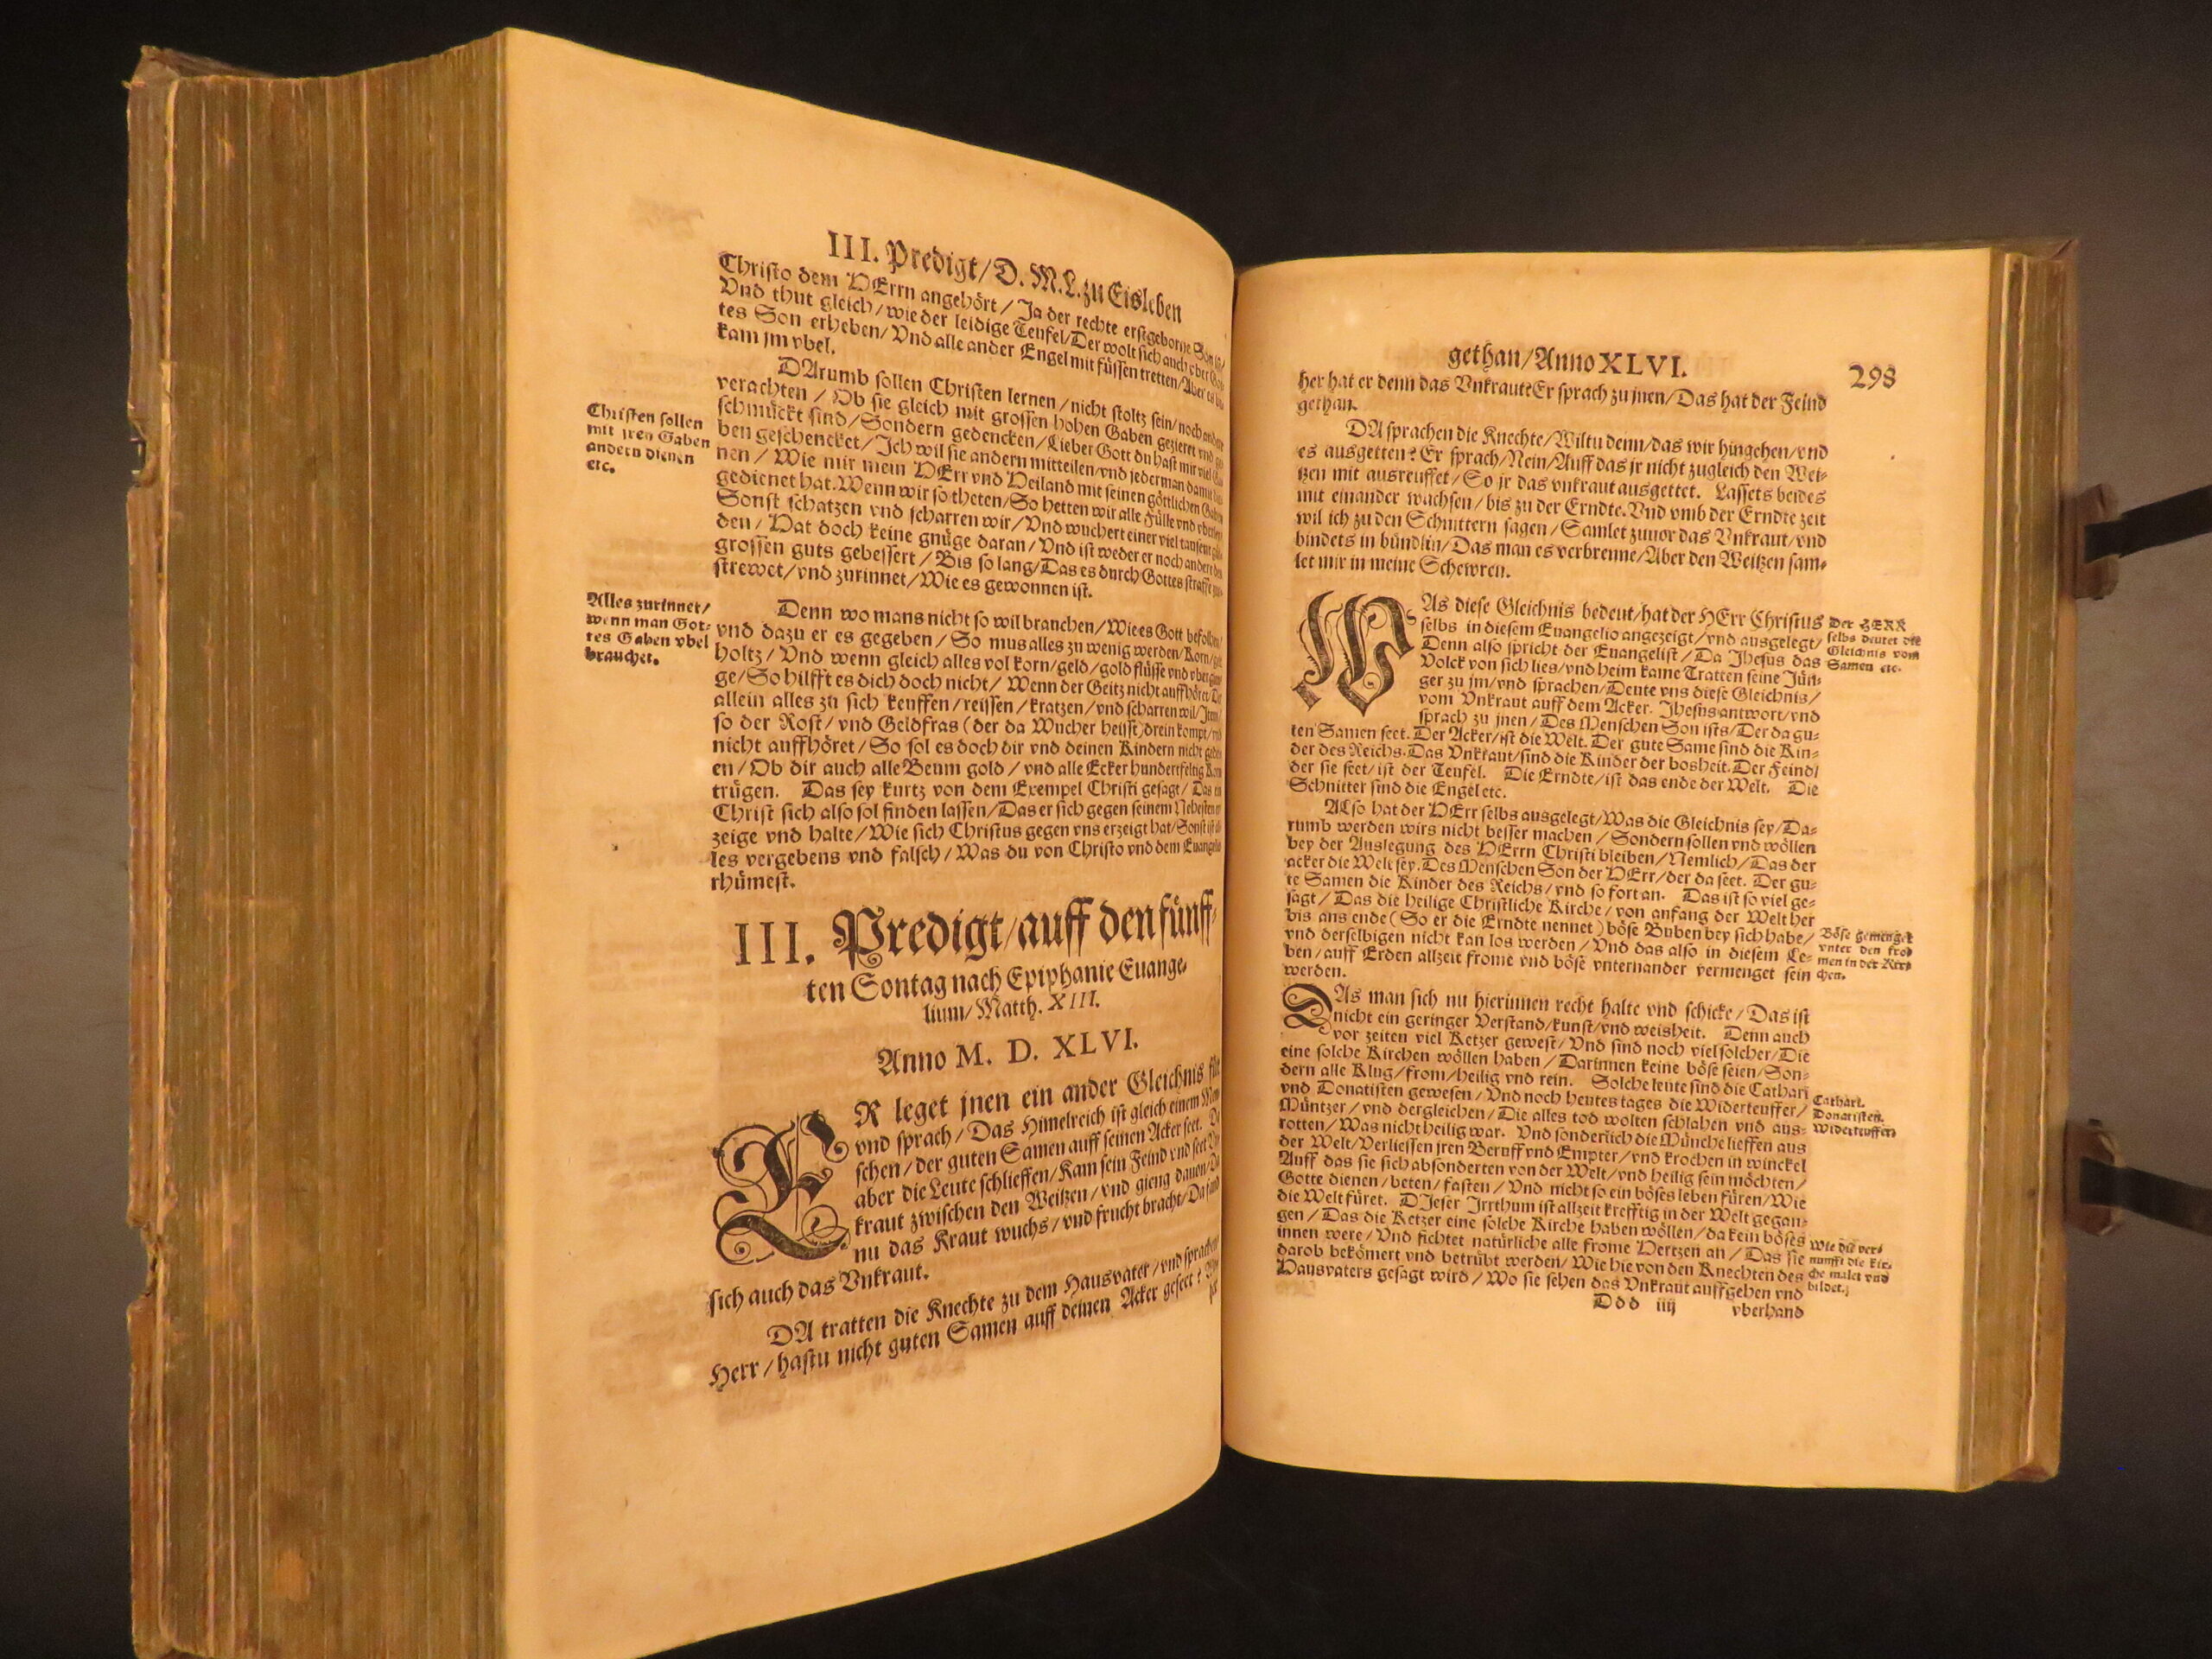 III. Predigt/D. M. L. zu Eisleben
Christo dem HErrn angehört/Ja der rechte erstgeborne Son
Vnd thut gleich/wie der leidige Teufel/Der wolt sich auch vber Got-
tes Son erheben/Vnd alle ander Engel mit füssen tretten/Aber es
kam jm vbel.
DArumb sollen Christen lernen/nicht stoltz sein/noch andere
verachten/Ob sie gleich mit grossen hohen Gaben gezieret vnd ge-
schmückt sind/Sondern gedencken/Lieber Gott du hast mir viel
ben geschencket/Ich wil sie andern mitteilen/vnd jederman damit
nen/Wie mir mein HErr vnd Heiland mit seinen göttlichen Gaben
gedienet hat. Wenn wir so theten/So hetten wir alle Fülle vnd
Sonst schatzen vnd scharren wir/Vnd wuchert einer viel tausent
den/Hat doch keine gnüge daran/Vnd ist weder er noch ander des
grossen guts gebessert/Bis so lang/Das es durch Gottes straffe
strewet/vnd zurinnet/Wie es gewonnen ist.
Christen sollen
mit jren Gaben
andern dienen
etc.
Denn wo mans nicht so wil brauchen/Wie es Gott befolhen/
vnd dazu er es gegeben/So mus alles zu wenig werden/Korn/
holtz/Vnd wenn gleich alles vol korn/geld/gold flüsse vnd
ge/So hilfft es dich doch nicht/Wenn der Geitz nicht auffhöret/
allein alles zu sich keuffen/reissen/kratzen/vnd scharren wil/Item/
so der Rost/vnd Geldfras (der da Wucher heisst) drein kompt/vnd
nicht auffhöret/So sol es doch dir vnd deinen Kindern nicht
en/Ob dir auch alle Beum gold/vnd alle Ecker hundertfeltig Korn
trügen. Das sey kurtz von dem Exempel Christi gesagt/Das ein
Christ sich also sol finden lassen/Das er sich gegen seinem Nehesten er
zeige vnd halte/Wie sich Christus gegen vns erzeigt hat/Sonst ist al
les vergebens vnd falsch/Was du von Christo vnd dem Euangelio
rhümest.
Alles zurinnet/
wenn man Got-
tes Gaben vbel
brauchet.
III. Predigt/auff den fünff-
ten Sontag nach Epiphanie Euange-
lium/Matth. XIII.
Anno M. D. XLVI.
ER leget jnen ein ander Gleichnis für
vnd sprach/Das Himelreich ist gleich einem Men
schen/der guten Samen auff seinen Acker seet. Da
aber die Leute schlieffen/Kam sein Feind vnd seet Vn
kraut zwischen den Weitzen/vnd gieng dauon/Da
nu das Kraut wuchs/vnd frucht bracht/Da fand
sich auch das Vnkraut.
DA tratten die Knechte zu dem Hausvater/vnd sprachen
Herr/hastu nicht guten Samen auff deinen Acker geseet?
gethan/Anno XLVI.
298
her hat er denn das Vnkraut? Er sprach zu jnen/Das hat der Feind
gethan.
DA sprachen die Knechte/Wiltu denn/das wir hingehen/vnd
es ausgetten? Er sprach/Nein/Auff das jr nicht zugleich den Wei-
tzen mit ausreuffet/So jr das vnkraut ausgettet. Lassets beides
mit einander wachsen/bis zu der Erndte. Vnd vmb der Erndte zeit
wil ich zu den Schnittern sagen/Samlet zuuor das Vnkraut/vnd
bindets in bündlin/Das man es verbrenne/Aber den Weitzen sam-
let mir in meine Schewren.
WAs diese Gleichnis bedeut/hat der HErr Christus
selbs in diesem Euangelio angezeigt/vnd ausgelegt/
Denn also spricht der Euangelist/Da Jhesus das
Volck von sich lies/vnd heim kame Tratten seine Jün-
ger zu jm/vnd sprachen/Deute vns diese Gleichnis/
vom Vnkraut auff dem Acker. Jhesus antwort/vnd
sprach zu jnen/Des Menschen Son ists/Der da gu-
ten Samen seet. Der Acker/ist die Welt. Der gute Same sind die Kin-
der des Reichs. Das Vnkraut/sind die Kinder der bosheit. Der Feind/
der sie seet/ist der Teufel. Die Erndte/ist das ende der Welt. Die
Schnitter sind die Engel etc.
Der HERR
selbs deutet die
Gleichnis vom
Samen etc.
ALso hat der HErr selbs ausgelegt/Was die Gleichnis sey/Da-
rumb werden wirs nicht besser machen/Sondern sollen vnd wöllen
bey der Auslegung des HErrn Christi bleiben/Nemlich/Das der
acker die Welt sey. Des Menschen Son der HErr/der da seet. Der gu-
te Samen die Kinder des Reichs/vnd so fort an. Das ist so viel ge-
sagt/Das die heilige Christliche Kirche/von anfang der Welt her
bis ans ende (So er die Erndte nennet) böse Buben bey sich habe/
vnd derselbigen nicht kan los werden/Vnd das also in diesem Le-
ben/auff Erden allzeit frome vnd böse vnternander vermenget sein
werden.
Böse gemenget
vnter den fro-
men in der Kir-
chen.
DAs man sich nu hierinnen recht halte vnd schicke/Das ist
nicht ein geringer Verstand/kunst/vnd weisheit. Denn auch
vor zeiten viel Ketzer gewest/Vnd sind noch viel solcher/Die
eine solche Kirchen wöllen haben/Darinnen keine böse seien/Son-
dern alle Klug/from/heilig vnd rein. Solche leute sind die Cathari
vnd Donatisten gewesen/Vnd noch heutes tages die Widerteuffer/
Müntzer/vnd dergleichen/Die alles tod wolten schlahen vnd aus-
rotten/Was nicht heilig war. Vnd sonderlich die Münche lieffen aus
der Welt/Verliessen jren Beruff vnd Empter/vnd krochen in winckel
Auff das sie sich absonderten von der Welt/vnd heilig sein möchten/
Gotte dienen/beten/fasten/Vnd nicht so ein böses leben füren/Wie
die Welt füret. DIeser Irrthum ist allzeit krefftig in der Welt gegan-
gen/Das die Ketzer eine solche Kirche haben wöllen/da kein böses
innen were/Vnd fichtet natürliche alle frome Hertzen an/Das sie
darob bekömert vnd betrübt werden/Wie hie von den Knechten des
Hausvaters gesagt wird/Wo sie sehen das Vnkraut auffgehen vnd
Cathari.
Donatisten.
Widerteuffer.
Wie die ver-
nunfft die Kir-
che malet vnd
bildet.
Ddd iiij
vberhand